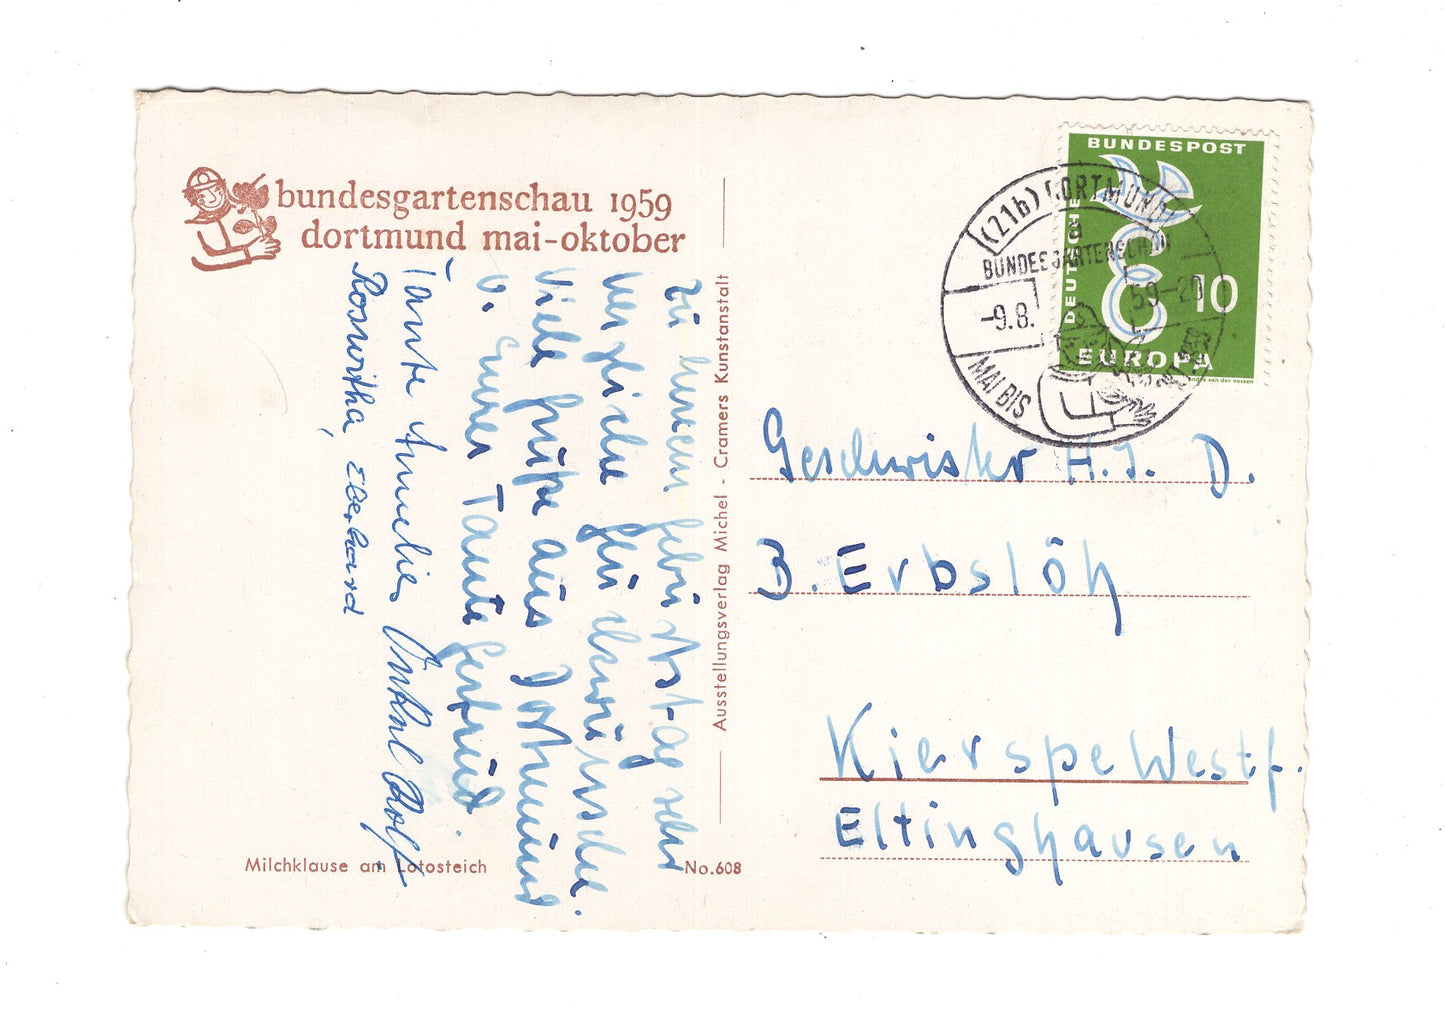 bundesgartenschau 1959
dortmund mai-oktober
Zu Eurem Geburtstag sehr
herzliche Glückwünsche.
Viele Grüße aus Dortmund
v. Eurer Tante Gertrud.
Tante Annelies Onkel Rolf
Roswitha, Eberhard
Milchklause am Lotosteich
No.608
Ausstellungsverlag Michel - Cramers Kunstanstalt
BUNDESPOST
DEUTSCHE
10
EUROPA
(21b) DORTMUND
a
BUNDESGARTENSCHAU
-9.8. 59-20
MAI BIS OKTOBER
Geschwister H.J. D.
B. Erbslöh
Kierspe Westf.
Eltinghausen